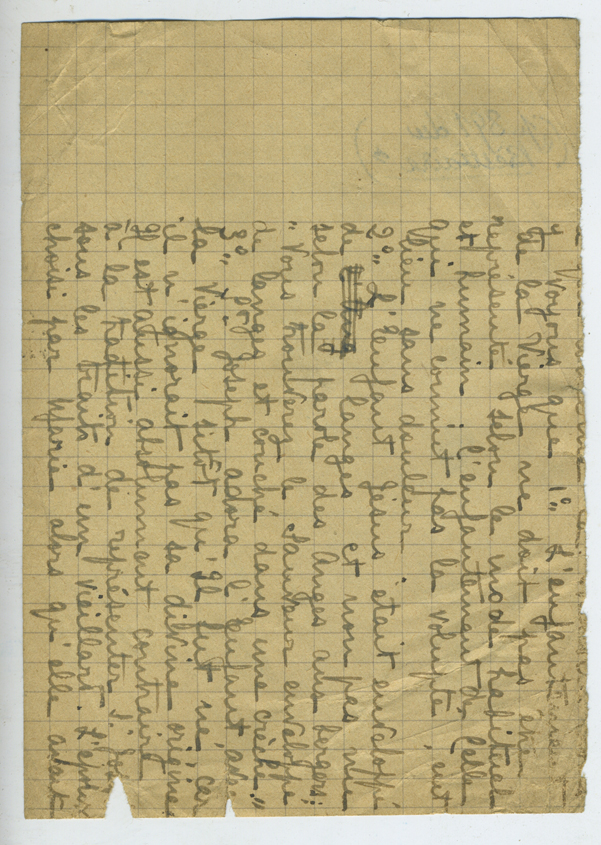 voyons que 1° L'enfantement
de la Vierge ne doit pas être
représenté selon le mode habituel
et humain : l'enfantement de Celle
qui ne connut pas la volupté eut
lieu sans douleur
2° L'enfant Jésus était enveloppé
de langes et non pas nu
selon la parole des anges aux bergers:
"Vous trouverez le Sauveur enveloppé
de langes et couché dans une crèche"
3° St Joseph adora l'enfant
la Vierge sitôt qu'Il fut né, car
il n'ignorait pas sa divine origine
Il est aussi absolument contraire
à la tradition de représenter St
sous les traits d'un vieillard. L'époux
choisi par Marie alors qu'elle avait